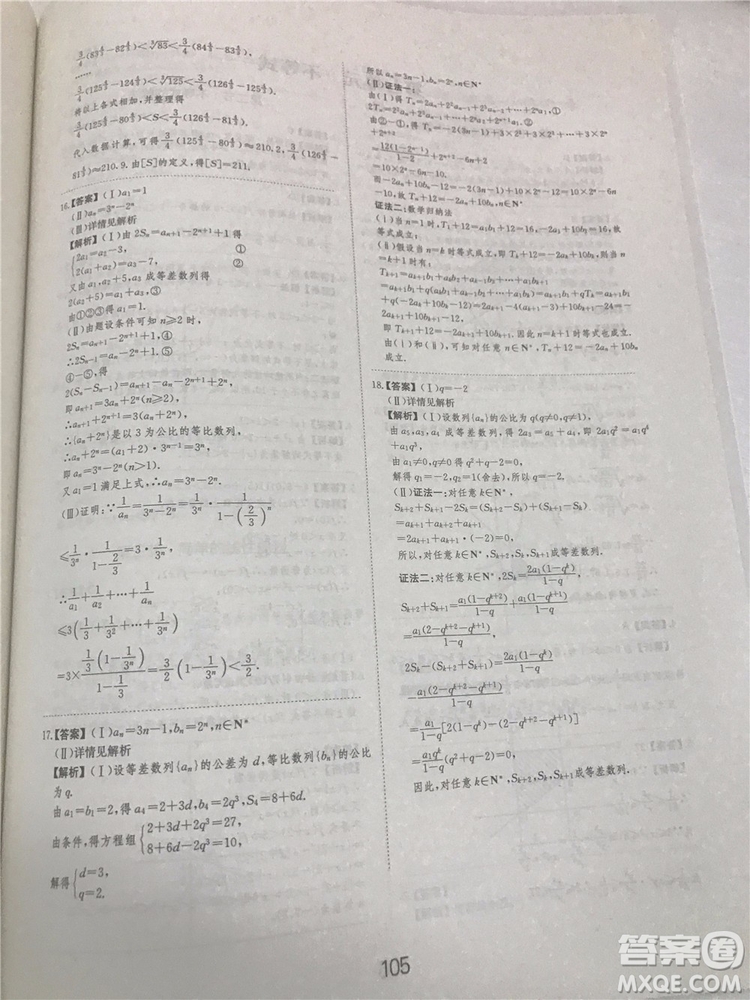 3/4(83^{4/3}-82^{4/3})<∛83<3/4(84^{4/3}-83^{4/3}).
……
3/4(125^{4/3}-124^{4/3})<∛125<3/4(126^{4/3}-125^{4/3}).
将以上各式相加,并整理得
3/4(125^{4/3}-80^{4/3})<S<3/4(126^{4/3}-81^{4/3}).
代入数据计算,可得3/4(125^{4/3}-80^{4/3})≈210.2,3/4(126^{4/3}-
81^{4/3})≈210.9.由[S]的定义,得[S]=211.
16.【答案】(Ⅰ)a₁=1
(Ⅱ)aₙ=3ⁿ-2ⁿ
(Ⅲ)详情见解析
【解析】(Ⅰ)由2Sₙ=aₙ₊₁-2ⁿ⁺¹+1得
{2a₁=a₂-3, ①
2(a₁+a₂)=a₃-7, ②
又由a₁,a₂+5,a₃成等差数列得
2(a₂+5)=a₁+a₃,③
由①②③得a₁=1.
(Ⅱ)由题设条件可知n≥2时,
2Sₙ=aₙ₊₁-2ⁿ⁺¹+1 ④
2Sₙ₋₁=aₙ-2ⁿ+1 ⑤
④-⑤得
2(Sₙ-Sₙ₋₁)=aₙ₊₁-aₙ-2ⁿ⁺¹+2ⁿ,
∴aₙ₊₁=3aₙ+2ⁿ(n≥2),
∴aₙ₊₁+2ⁿ⁺¹=3(aₙ+2ⁿ)(n≥2),
∴{aₙ+2ⁿ}是以3为公比的等比数列,
∴aₙ+2ⁿ=(a₁+2)·3ⁿ⁻¹=3ⁿ,
即aₙ=3ⁿ-2ⁿ(n>1).
又a₁=1满足上式,∴aₙ=3ⁿ-2ⁿ.
(Ⅲ)证明:∵1/aₙ=1/(3ⁿ-2ⁿ)=1/3ⁿ·1/(1-(2/3)ⁿ)
≤1/3ⁿ·1/(1-2/3)=3·1/3ⁿ,
∴1/a₁+1/a₂+…+1/aₙ
≤3(1/3+1/3²+…+1/3ⁿ)
=3×(1/3(1-1/3ⁿ))/(1-1/3)=3/2(1-1/3ⁿ)<3/2.
17.【答案】(Ⅰ)aₙ=3n-1,bₙ=2ⁿ,n∈N*
(Ⅱ)详情见解析
【解析】(Ⅰ)设等差数列{aₙ}的公差为d,等比数列{bₙ}的公比
为q.
由a₁=b₁=2,得a₄=2+3d,b₄=2q³,S₄=8+6d.
由条件,得方程组{2+3d+2q³=27,
8+6d-2q³=10,
解得{d=3,
q=2.
所以aₙ=3n-1,bₙ=2ⁿ,n∈N*
(Ⅱ)证法一:
由(Ⅰ)得Tₙ=2aₙ+2²aₙ₋₁+2³aₙ₋₂+…+2ⁿa₁,①
2Tₙ=2²aₙ+2³aₙ₋₁+…+2ⁿa₂+2ⁿ⁺¹a₁,②
由②-①,得Tₙ=-2(3n-1)+3×2²+3×2³+…+3×2ⁿ
+2ⁿ⁺²
=12(1-2ⁿ⁻¹)/(1-2)+2ⁿ⁺²-6n+2
=10×2ⁿ-6n-10.
而-2aₙ+10bₙ-12=-2(3n-1)+10×2ⁿ-12=10×2ⁿ-6n-
10.故Tₙ+12=-2aₙ+10bₙ,n∈N*.
证法二:数学归纳法
(ⅰ)当n=1时,T₁+12=a₁b₁+12=16,-2a₁+10b₁=16,故
等式成立.
(ⅱ)假设当n=k时等式成立,即Tₖ+12=-2aₖ+10bₖ,则当n
=k+1时有:
Tₖ₊₁=aₖ₊₁b₁+aₖb₂+aₖ₋₁b₃+…+a₁bₖ₊₁
=aₖ₊₁b₁+q(aₖb₁+aₖ₋₁b₂+…+a₁bₖ)=aₖ₊₁b₁+qTₖ=aₖ₊₁b₁+q
(-2aₖ+10bₖ-12)=2aₖ₊₁-4(aₖ₊₁-3)+10bₖ₊₁-24=-2aₖ₊₁
+10bₖ₊₁-12.
即Tₖ₊₁+12=-2aₖ₊₁+10bₖ₊₁.因此n=k+1时等式也成立.
由(ⅰ)和(ⅱ),可知对任意n∈N*,Tₙ+12=-2aₙ+10bₙ
成立.
18.【答案】(Ⅰ)q=-2
(Ⅱ)详情见解析
【解析】(Ⅰ)设数列{aₙ}的公比为q(q≠0,q≠1),
由a₅,a₃,a₄成等差数列,得2a₃=a₅+a₄,即2a₁q²=a₁q⁴
+a₁q³.
由a₁≠0,q≠0得q²+q-2=0,
解得q=-2,q₂=1(舍去),所以q=-2.
(Ⅱ)证法一:对任意k∈N*,
Sₖ₊₂+Sₖ₊₁-2Sₖ=(Sₖ₊₂-Sₖ)+(Sₖ₊₁-Sₖ)
=aₖ₊₁+aₖ₊₂+aₖ₊₁
=2aₖ₊₁+aₖ₊₁·(-2)=0.
所以,对任意k∈N*,Sₖ₊₂,Sₖ,Sₖ₊₁成等差数列.
证法二:对任意k∈N*,2Sₖ=2a₁(1-qᵏ)/(1-q),
Sₖ₊₂+Sₖ₊₁=a₁(1-qᵏ⁺²)/(1-q)+a₁(1-qᵏ⁺¹)/(1-q)
=a₁(2-qᵏ⁺²-qᵏ⁺¹)/(1-q),
2Sₖ-(Sₖ₊₂+Sₖ₊₁)=2a₁(1-qᵏ)/(1-q)
-a₁(2-qᵏ⁺²-qᵏ⁺¹)/(1-q)
=a₁/(1-q)[2(1-qᵏ)-(2-qᵏ⁺²-qᵏ⁺¹)]
=a₁qᵏ/(1-q)(q²+q-2)=0,
因此,对任意k∈N*,Sₖ₊₂,Sₖ,Sₖ₊₁成等差数列.
105
答案圈
MXQE.COM